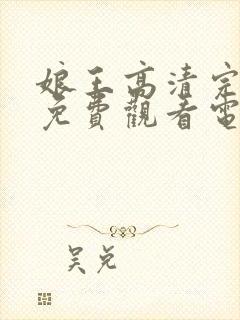 娘王高清完
免費觀看電
吴兑